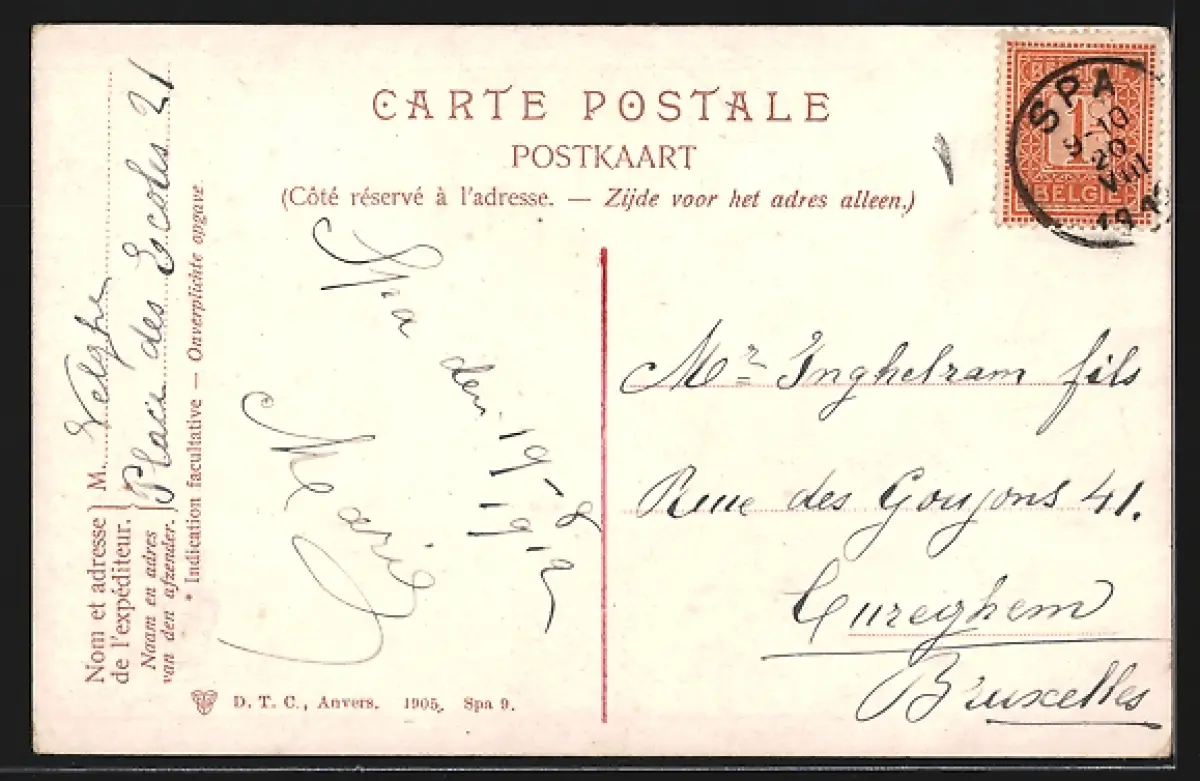 CARTE POSTALE
POSTKAART
(Côté réservé à l'adresse. — Zijde voor het adres alleen.)
BELGIQUE
1
BELGIË
SPA
9-10
20
VIII
Nom et adresse
de l'expéditeur.
Naam en adres
van den afzender.
M. Velghe
Place des Ecoles 21
* Indication facultative — Onverplichte opgave
Spa den 19-8
1912
Marie
Mr Inghelram fils
Rue des Goujons 41.
Cureghem
Bruxelles
D. T. C., Anvers. 1905. Spa 9.